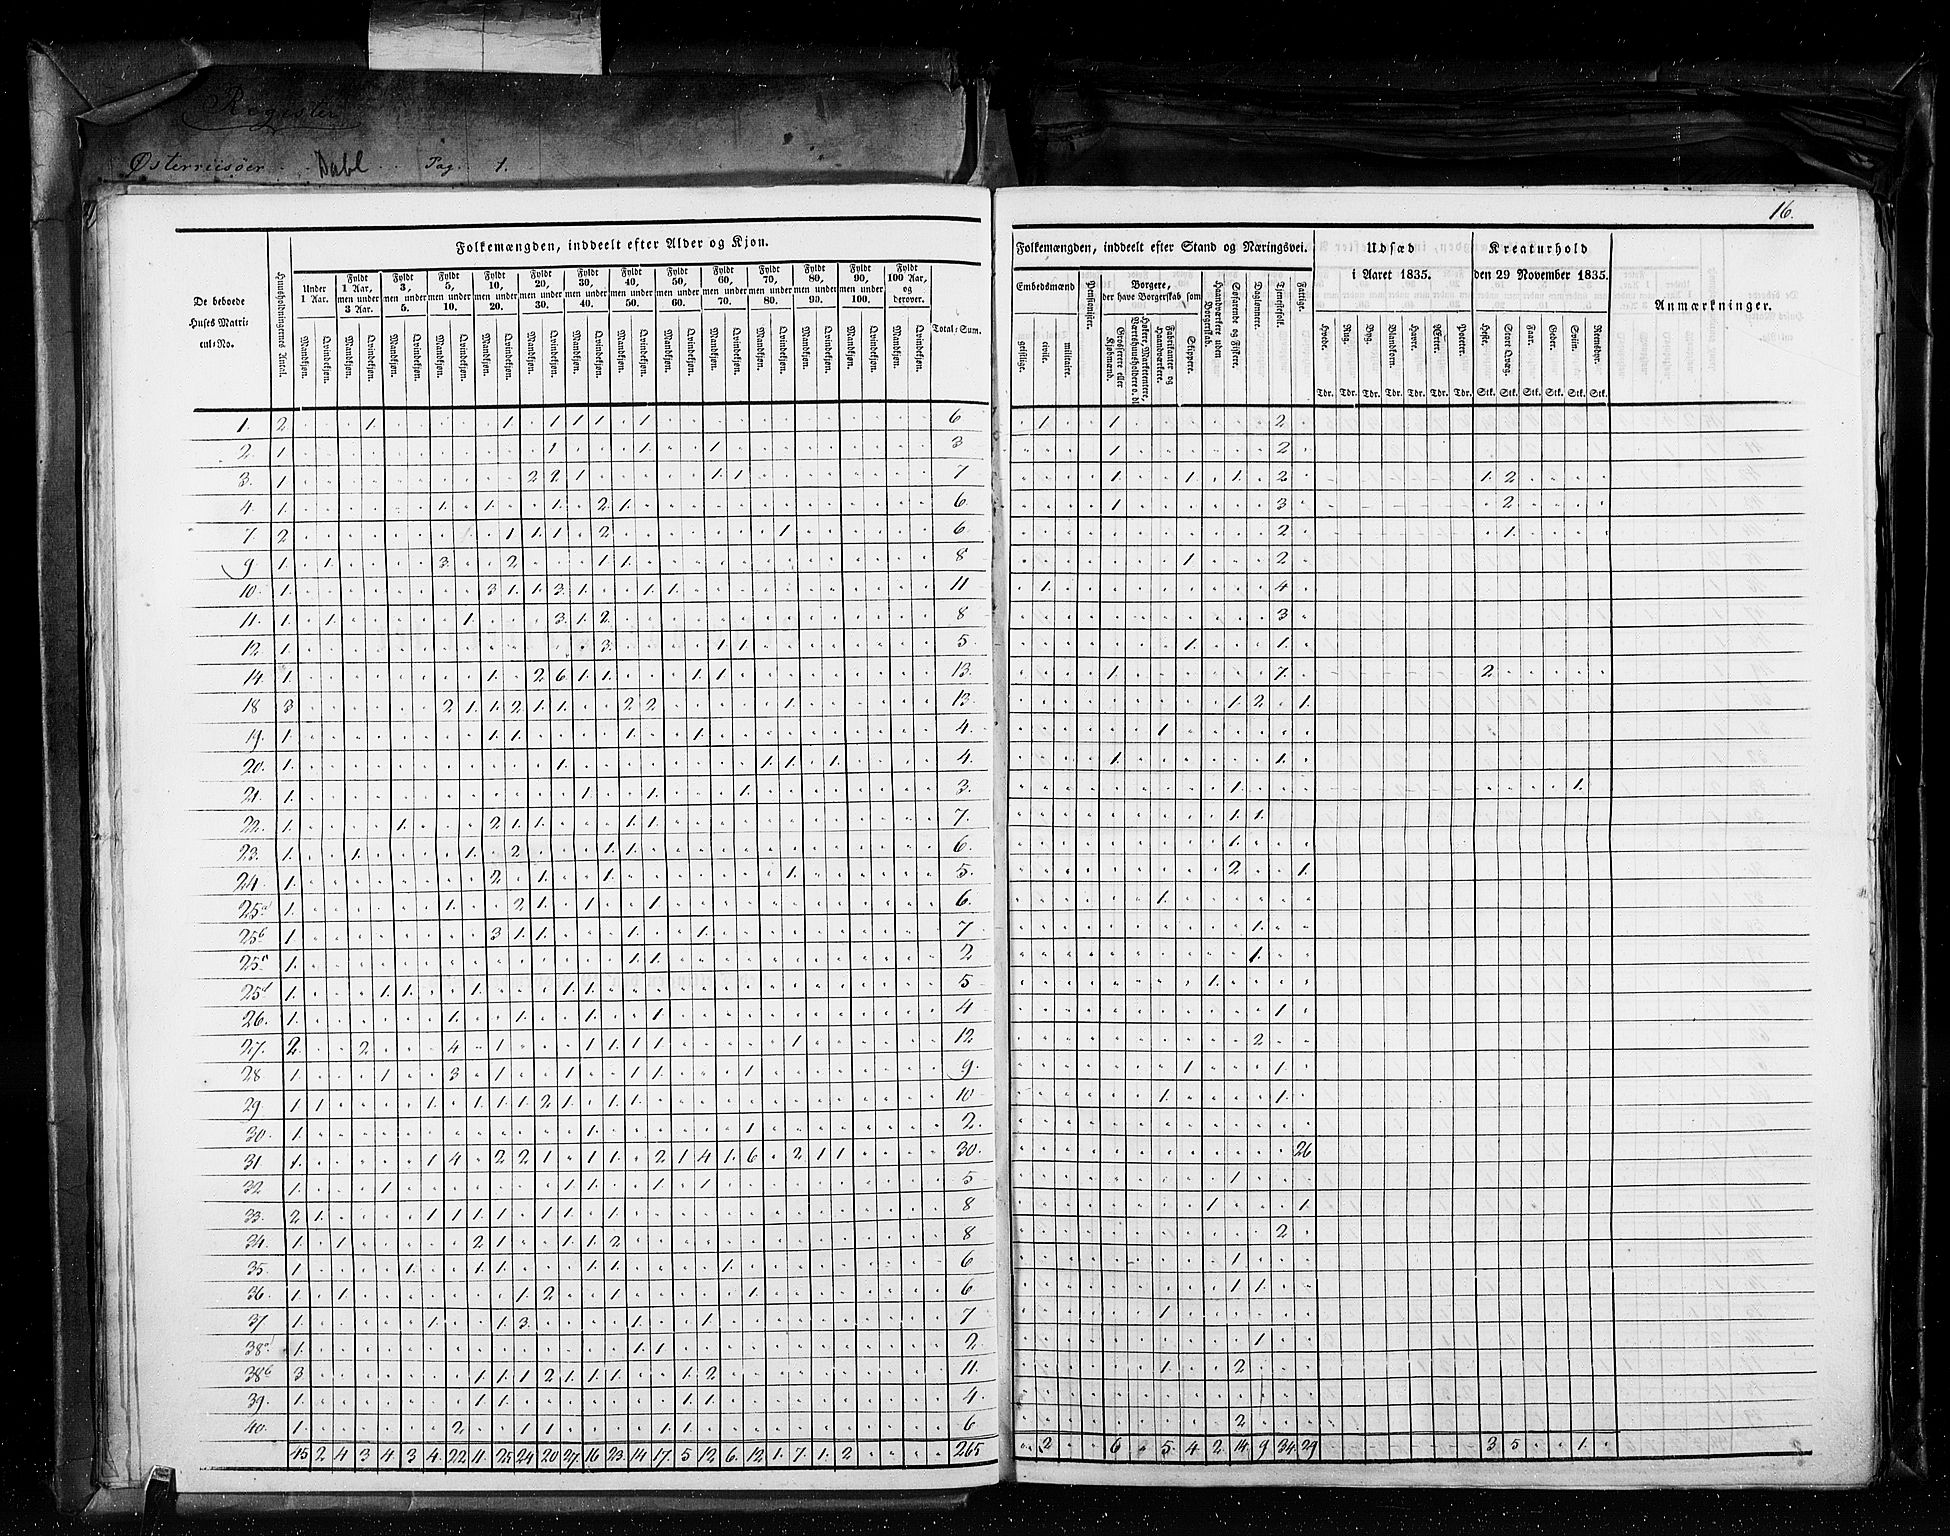 Register
Østerriisøer Dahl Pag. 1.
16.
Folkemængden, inddeelt efter Alder og Kjøn.
De beboede Huses Matricul-No.
Huusholdningernes Antal.
Under 1 Aar.
Fyldt 1 Aar, men under 3 Aar.
Fyldt 3, men under 5.
Fyldt 5, men under 10.
Fyldt 10, men under 20.
Fyldt 20, men under 30.
Fyldt 30, men under 40.
Fyldt 40, men under 50.
Fyldt 50, men under 60.
Fyldt 60, men under 70.
Fyldt 70, men under 80.
Fyldt 80, men under 90.
Fyldt 90, men under 100.
Fyldt 100 Aar, og derover.
Total-Sum.
Mandkjøn. Qvindekjøn.
Folkemængden, inddeelt efter Stand og Næringsvei.
Embedsmænd
geistlige. civile. militaire.
Pensionister.
Borgere, der have Borgerskab som
Grosserere eller Kjøbmænd.
Høkere, Marketentere, Værtshuusholdere o. dl.
Fabrikanter og Haandværkere.
Skippere.
Haandværkere uden Borgerskab.
Søfarende og Fiskere.
Daglønnere.
Tjenestefolk.
Fattige.
Udsæd i Aaret 1835.
Hvede. Rug. Byg. Blandkorn. Havre. Erter. Poteter.
Tdr. Tdr. Tdr. Tdr. Tdr. Tdr. Tdr.
Kreaturhold den 29 November 1835.
Heste. Stort Qvæg. Faar. Geder. Sviin. Rensdyr.
Stk. Stk. Stk. Stk. Stk. Stk.
Anmærkninger.
1. 2 1 1 1 1 1 1 6 1 1 2
2. 1 1 1 1 3 1 2
3. 1 2 2 1 1 1 7 1 1 1 2 1 2
4. 1 1 1 1 2 1 6 1 3 2
7. 2 1 1 1 2 1 6 2 1
9. 1 1 3 2 1 1 8 1 2
10. 1 3 1 1 3 1 1 1 11 1 4
11. 1 1 1 3 1 2 8 3
12. 1 3 1 1 5 1 1
14. 1 1 2 6 1 1 1 1 13 1 7 2
18 3 2 1 1 2 1 1 2 2 1 13 1 2 1
19. 1 1 1 1 1 4 1
20. 1 1 1 1 1 4 1 1
21. 1 1 1 1 3 1 1
22. 1 1 2 1 1 1 1 7 1 1
23. 1 1 1 2 1 1 6 1
24. 1 2 1 1 1 5 2 1
25a 1 1 2 1 1 1 6 1
25b 1 3 1 1 1 1 7 1
25c 1 1 1 2 1
25d 1 1 1 1 1 1 5 1
26. 1 1 1 1 1 4 1
27. 2 2 4 1 1 1 1 1 1 12 2
28 1 1 3 1 1 1 1 1 9 1 1
29. 1 1 1 1 1 1 2 1 1 1 10 1 1
30. 1 1 1 2
31 1 1 4 2 2 1 1 1 2 1 4 1 6 2 1 1 30 26
32 1 1 1 1 1 1 5 1
33. 2 1 1 1 1 1 1 1 1 8 1 1
34. 1 1 2 1 1 1 2 8 2
35. 1 1 1 1 1 1 1 6 1
36. 1 1 1 2 1 1 6 1 1
37 1 1 1 3 1 1 7 1
38a 1 1 1 2 1
38b 3 1 1 1 2 1 1 1 1 2 11 1 2
39. 1 1 1 1 1 4
40. 1 2 1 1 1 1 6 2
45 2 4 3 4 3 4 22 11 25 24 20 27 16 23 14 17 5 12 6 12 1 7 1 2 265 2 6 5 4 2 14 9 34 29 3 5 1